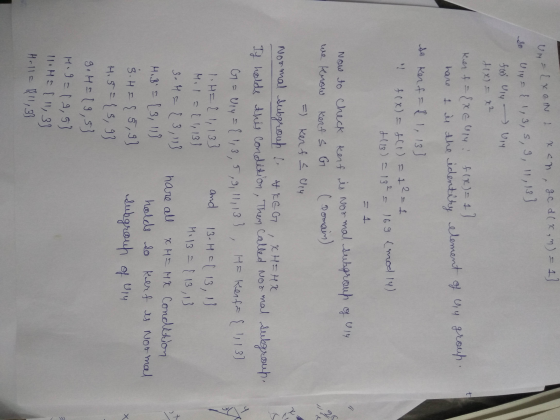 U₁₄ = { x ∈ N : x < n, gcd(x, n) = 1 }
so U₁₄ = { 1, 3, 5, 9, 11, 13 }
f: U₁₄ → U₁₄
f(x) = x²
ker f = { x ∈ U₁₄ : f(x) = 1 }
here 1 is the identity element of U₁₄ group.
so ker f = { 1, 13 }
∵ f(x) = f(1) = 1² = 1
f(13) = 13² = 169 (mod 14)
= 1
Now to check ker f is Normal subgroup of U₁₄
we know ker f ≤ G (Domain)
⇒ ker f ≤ U₁₄
Normal subgroup : ∀ x ∈ G, xH = Hx
If holds this condition, Then called Normal subgroup.
G = U₁₄ = { 1, 3, 5, 9, 11, 13 }, H = ker f = { 1, 13 }
1·H = { 1, 13 } and 13·H = { 13, 1 }
H·1 = { 1, 13 } H·13 = { 13, 1 }
3·H = { 3, 11 }
H·3 = { 3, 11 } here all xH = Hx condition
5·H = { 5, 9 } holds so ker f is Normal
H·5 = { 5, 9 } subgroup of U₁₄
9·H = { 9, 5 }
H·9 = { 9, 5 }
11·H = { 11, 3 }
H·11 = { 11, 3 }